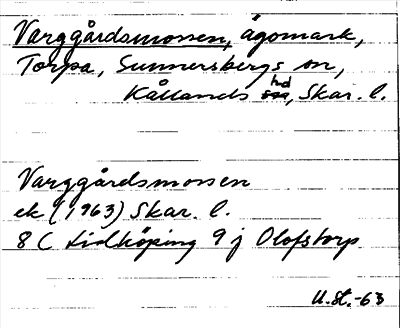 Varggårdsmossen, ägomark,
Torpa, Sunnersbergs sn,
Kållands hd, Skar. l.
Varggårdsmossen
ek (1963) Skar. l.
8 C Lidköping 9 j Olofstorp
U.st.-63